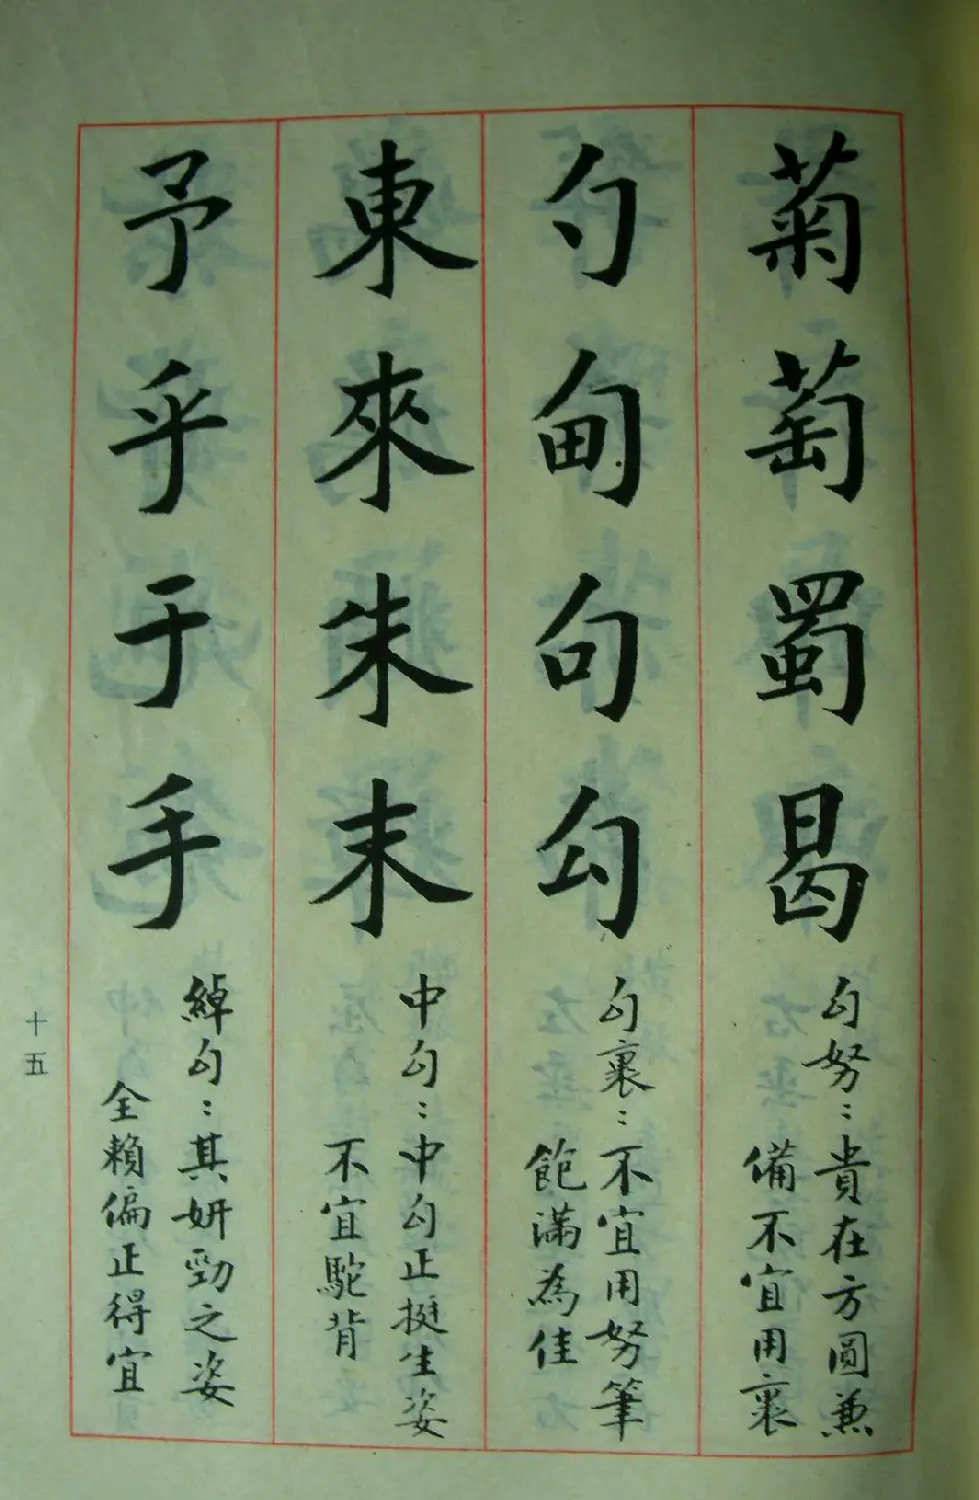 菊萄蜀曷
勾努：貴在方圓兼
備不宜用裹
勺甸句勾
勾裹：不宜用努筆
飽滿為佳
東來朱末
中勾：中勾正挺生姿
不宜駝背
予乎于手
綽勾：其妍勁之姿
全賴偏正得宜
十五